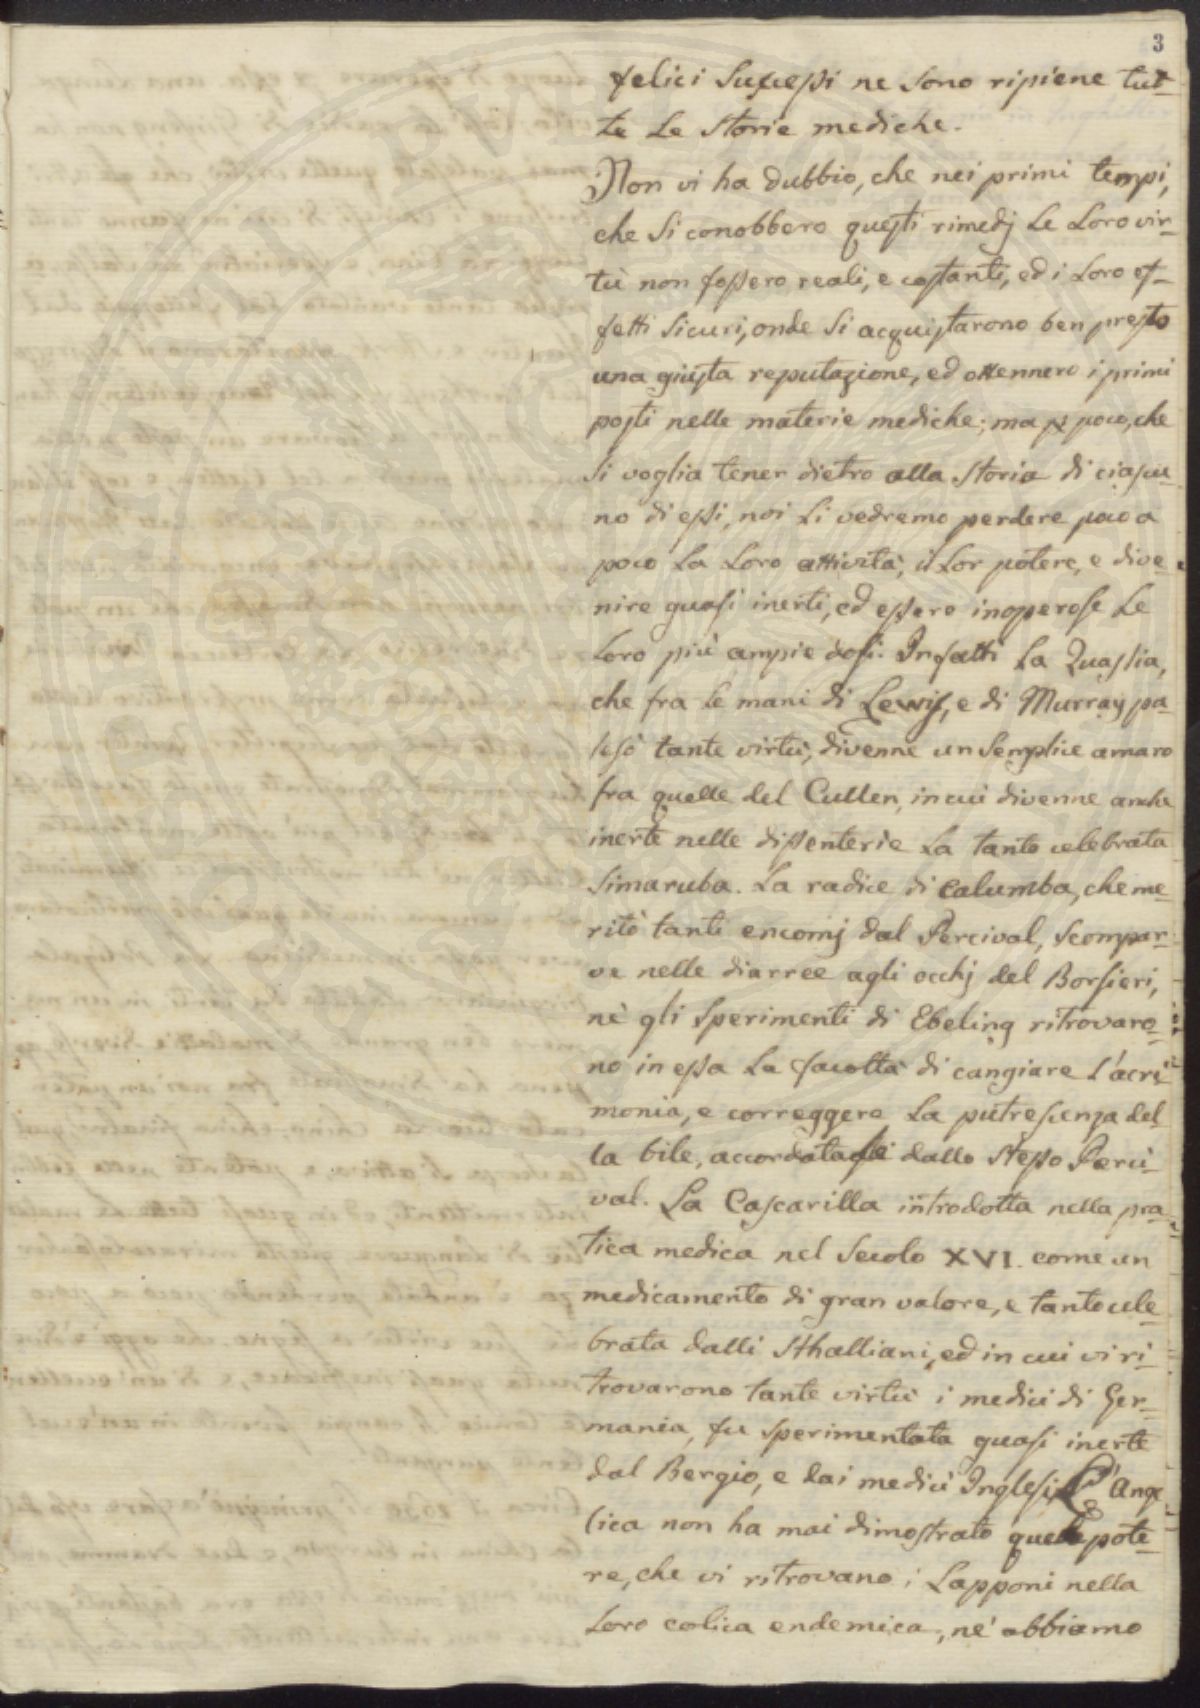 3
felici Successi ne Sono ripiene tut-
te Le Storie mediche.
Non vi ha dubbio, che nei primi tempi,
che Si conobbero questi rimedj Le Loro vir-
tù non fossero reali, e costanti, ed i Loro ef-
fetti Sicuri, onde Si acquistarono ben presto
una giusta reputazione, ed ottennero i primi
posti nelle materie mediche; ma p poco, che
Si voglia tener dietro alla Storia di ciascu-
no di essi, noi Li vedremo perdere poco a
poco La Loro attività, il Lor potere, e dive-
nire quasi inerti, ed essere inoperose Le
Loro più ampie dosi. Infatti La Quassia,
che fra le mani di Lewis, e di Murray pa-
lesò tante virtù, divenne un Semplice amaro
fra quelle del Cullen, in cui divenne anche
inerte nelle dissenterie La tanto celebrata
Simaruba. La radice di Calumba, che me-
ritò tanti encomj dal Percival, Scompar-
ve nelle diarree agli occhj del Borsieri,
nè gli Sperimenti di Ebeling ritrovaro-
no in essa La facoltà di cangiare L'acri-
monia, e correggere La putrescenza del
la bile, accordatagli dallo Stesso Perci-
val. La Cascarilla introdotta nella pra-
tica medica nel Secolo XVI. come un
medicamento di gran valore, e tanto cele-
brata dalli Sthalliani, ed in cui vi ri-
trovarono tante virtù i medici di Ger-
mania, fu Sperimentata quasi inerte
dal Bergio, e dai medici Inglesi. L'Ange
lica non ha mai dimostrato quel pote-
re, che vi ritrovano i Lapponi nella
Loro colica endemica, nè abbiamo